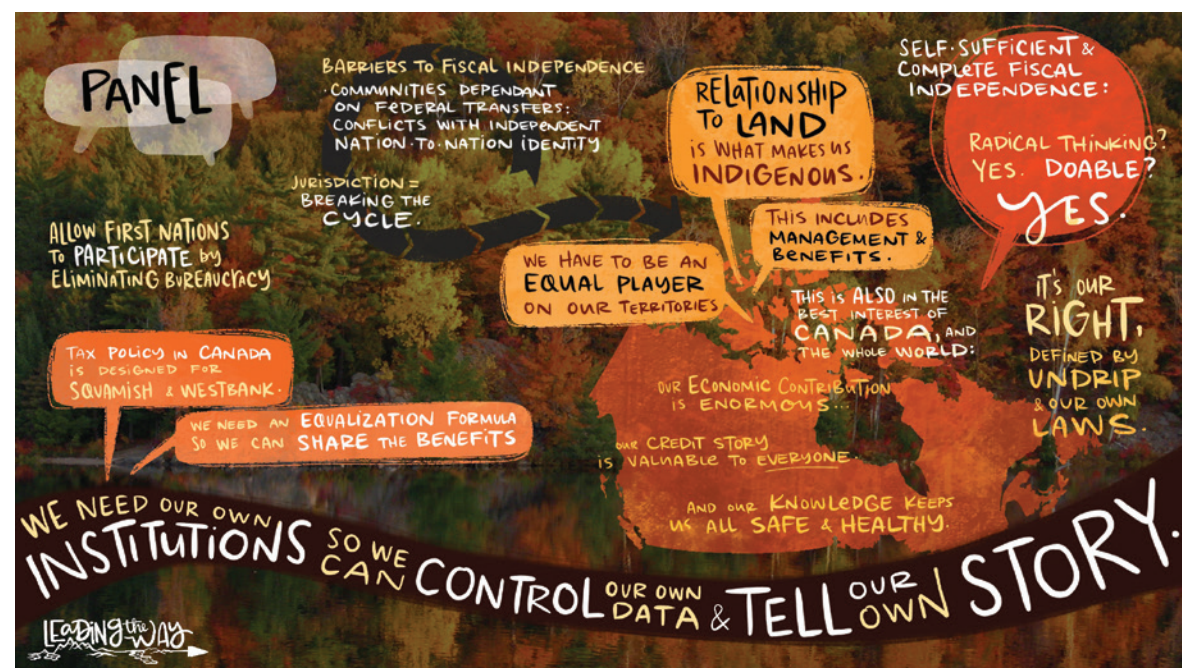 PANEL
BARRIERS TO FISCAL INDEPENDENCE
· COMMUNITIES DEPENDANT
ON FEDERAL TRANSFERS:
CONFLICTS WITH INDEPENDENT
NATION·TO·NATION IDENTITY
JURISDICTION =
BREAKING THE
CYCLE.
ALLOW FIRST NATIONS
to PARTICIPATE by
ELIMINATING BUREAUCRACY
TAX POLICY IN CANADA
IS DESIGNED FOR
SQUAMISH & WESTBANK.
WE NEED AN EQUALIZATION FORMULA
SO WE CAN SHARE THE BENEFITS
RELATIONSHIP
TO LAND
IS WHAT MAKES US
INDIGENOUS.
THIS INCLUDES
MANAGEMENT &
BENEFITS.
WE HAVE TO BE AN
EQUAL PLAYER
ON OUR TERRITORIES
SELF·SUFFICIENT &
COMPLETE FISCAL
INDEPENDENCE:
RADICAL THINKING?
YES. DOABLE?
YES.
THIS IS ALSO IN THE
BEST INTEREST OF
CANADA, AND
THE WHOLE WORLD:
OUR ECONOMIC CONTRIBUTION
IS ENORMOUS...
OUR CREDIT STORY
IS VALUABLE TO EVERYONE.
AND OUR KNOWLEDGE KEEPS
US ALL SAFE & HEALTHY.
IT'S OUR
RIGHT,
DEFINED BY
UNDRIP
& OUR OWN
LAWS.
WE NEED OUR OWN
INSTITUTIONS SO WE
CAN CONTROL OUR OWN
DATA & TELL OUR
OWN STORY.
LEADING the WAY